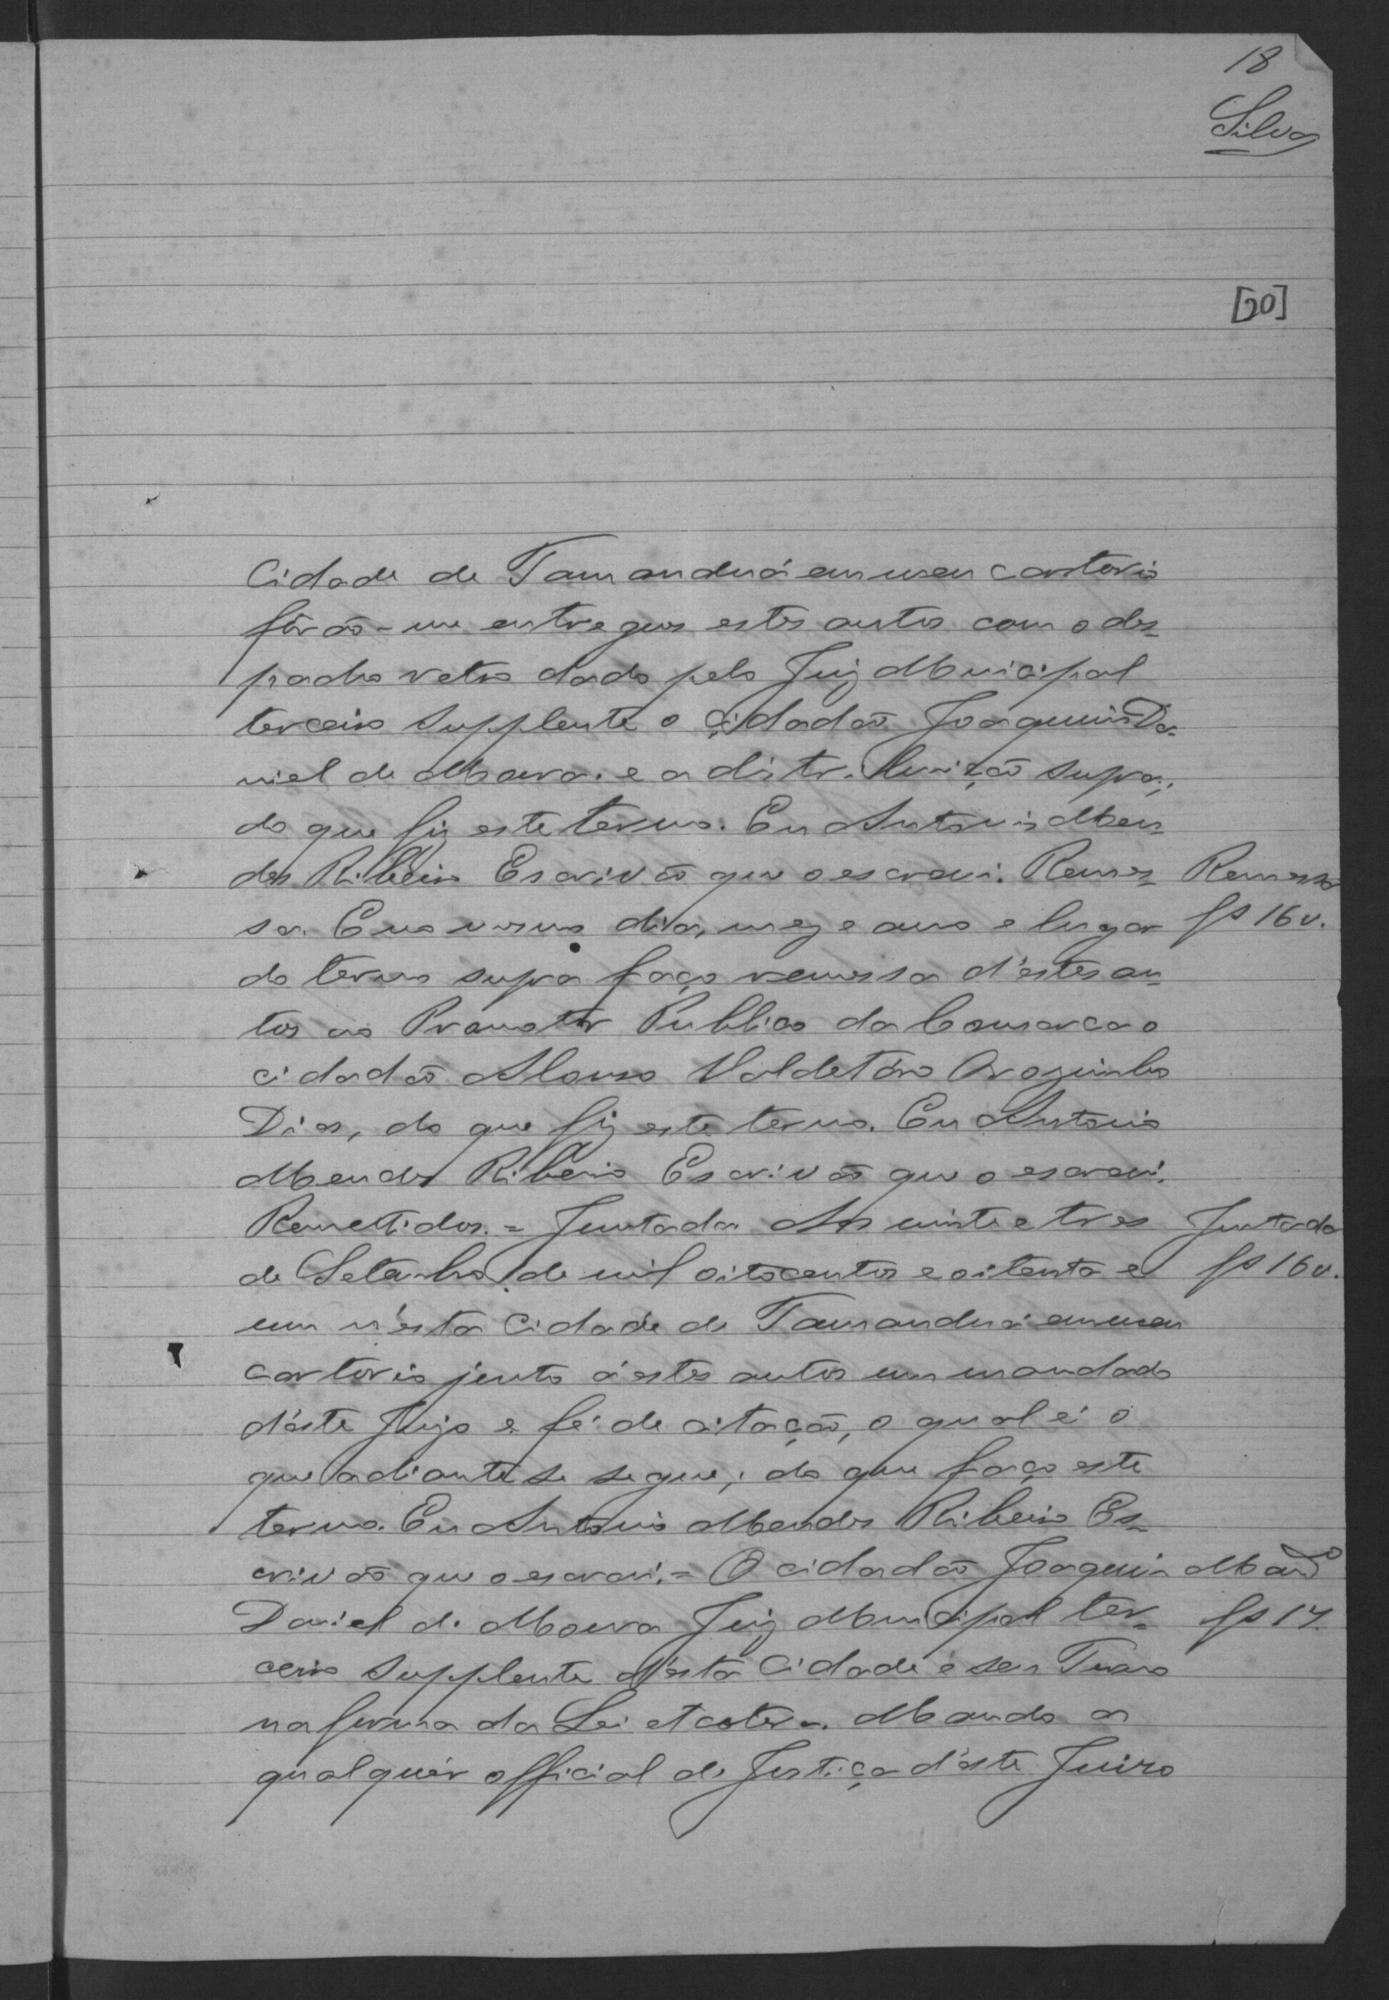 18
Silva
[20]
Cidade de Tamanduá em meu cartorio
fôrão-me entregues estes autos com o des-
pacho retro dado pelo Juiz Municipal
terceiro Supplente o cidadão Joaquim Da-
niel de Moura. e a distribuição supra;
do que fiz este termo. Eu Antonio Men-
des Ribeiro Escrivão que o escrevi. Remes-
Remessa
sa. E no mesmo dia, mez e anno e lugar
fs 16 v.
do termo supra faço remessa d'estes au-
tos ao Promotor Publico da Comarca o
cidadão Alonso Valdetáro
Dias, do que fiz este termo. Eu Antonio
Mendes Ribeiro Escrivão que o escrevi.
Remettidos. = Juntada Aos vinte e tres
Juntada
de Setembro de mil oitocentos e oitenta e
fs 16 v.
um n'esta Cidade de Tamanduá em meu
cartorio junto á estes autos um mandado
d'éste Juizo e fé de citação, o qual é o
que adiante se segue; do que faço este
termo. Eu Antonio Mendes Ribeiro Es-
crivão que o escrevi. = O cidadão Joaquim
Mandº
Daniel de Moura Juiz Municipal ter-
fs 17.
ceiro Supplente d'ésta Cidade e seu Termo
na forma da Lei etcetera. Mando a
qualquér official de Justiça d'éste Juizo